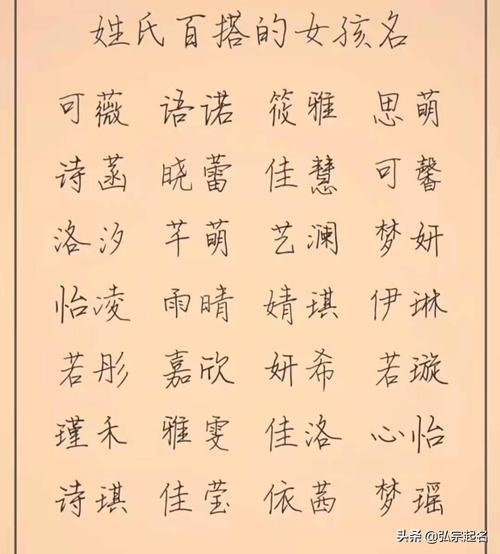 姓氏百搭的女孩名
可薇 语诺 筱雅 思萌
诗菡 晓蕾 佳慧 可馨
洛汐 芊萌 艺澜 梦妍
怡凌 雨晴 婧琪 伊琳
若彤 嘉欣 妍希 若璇
瑾禾 雅雯 佳洛 心怡
诗琪 佳莹 依茜 梦瑶
头条 @弘宗起名